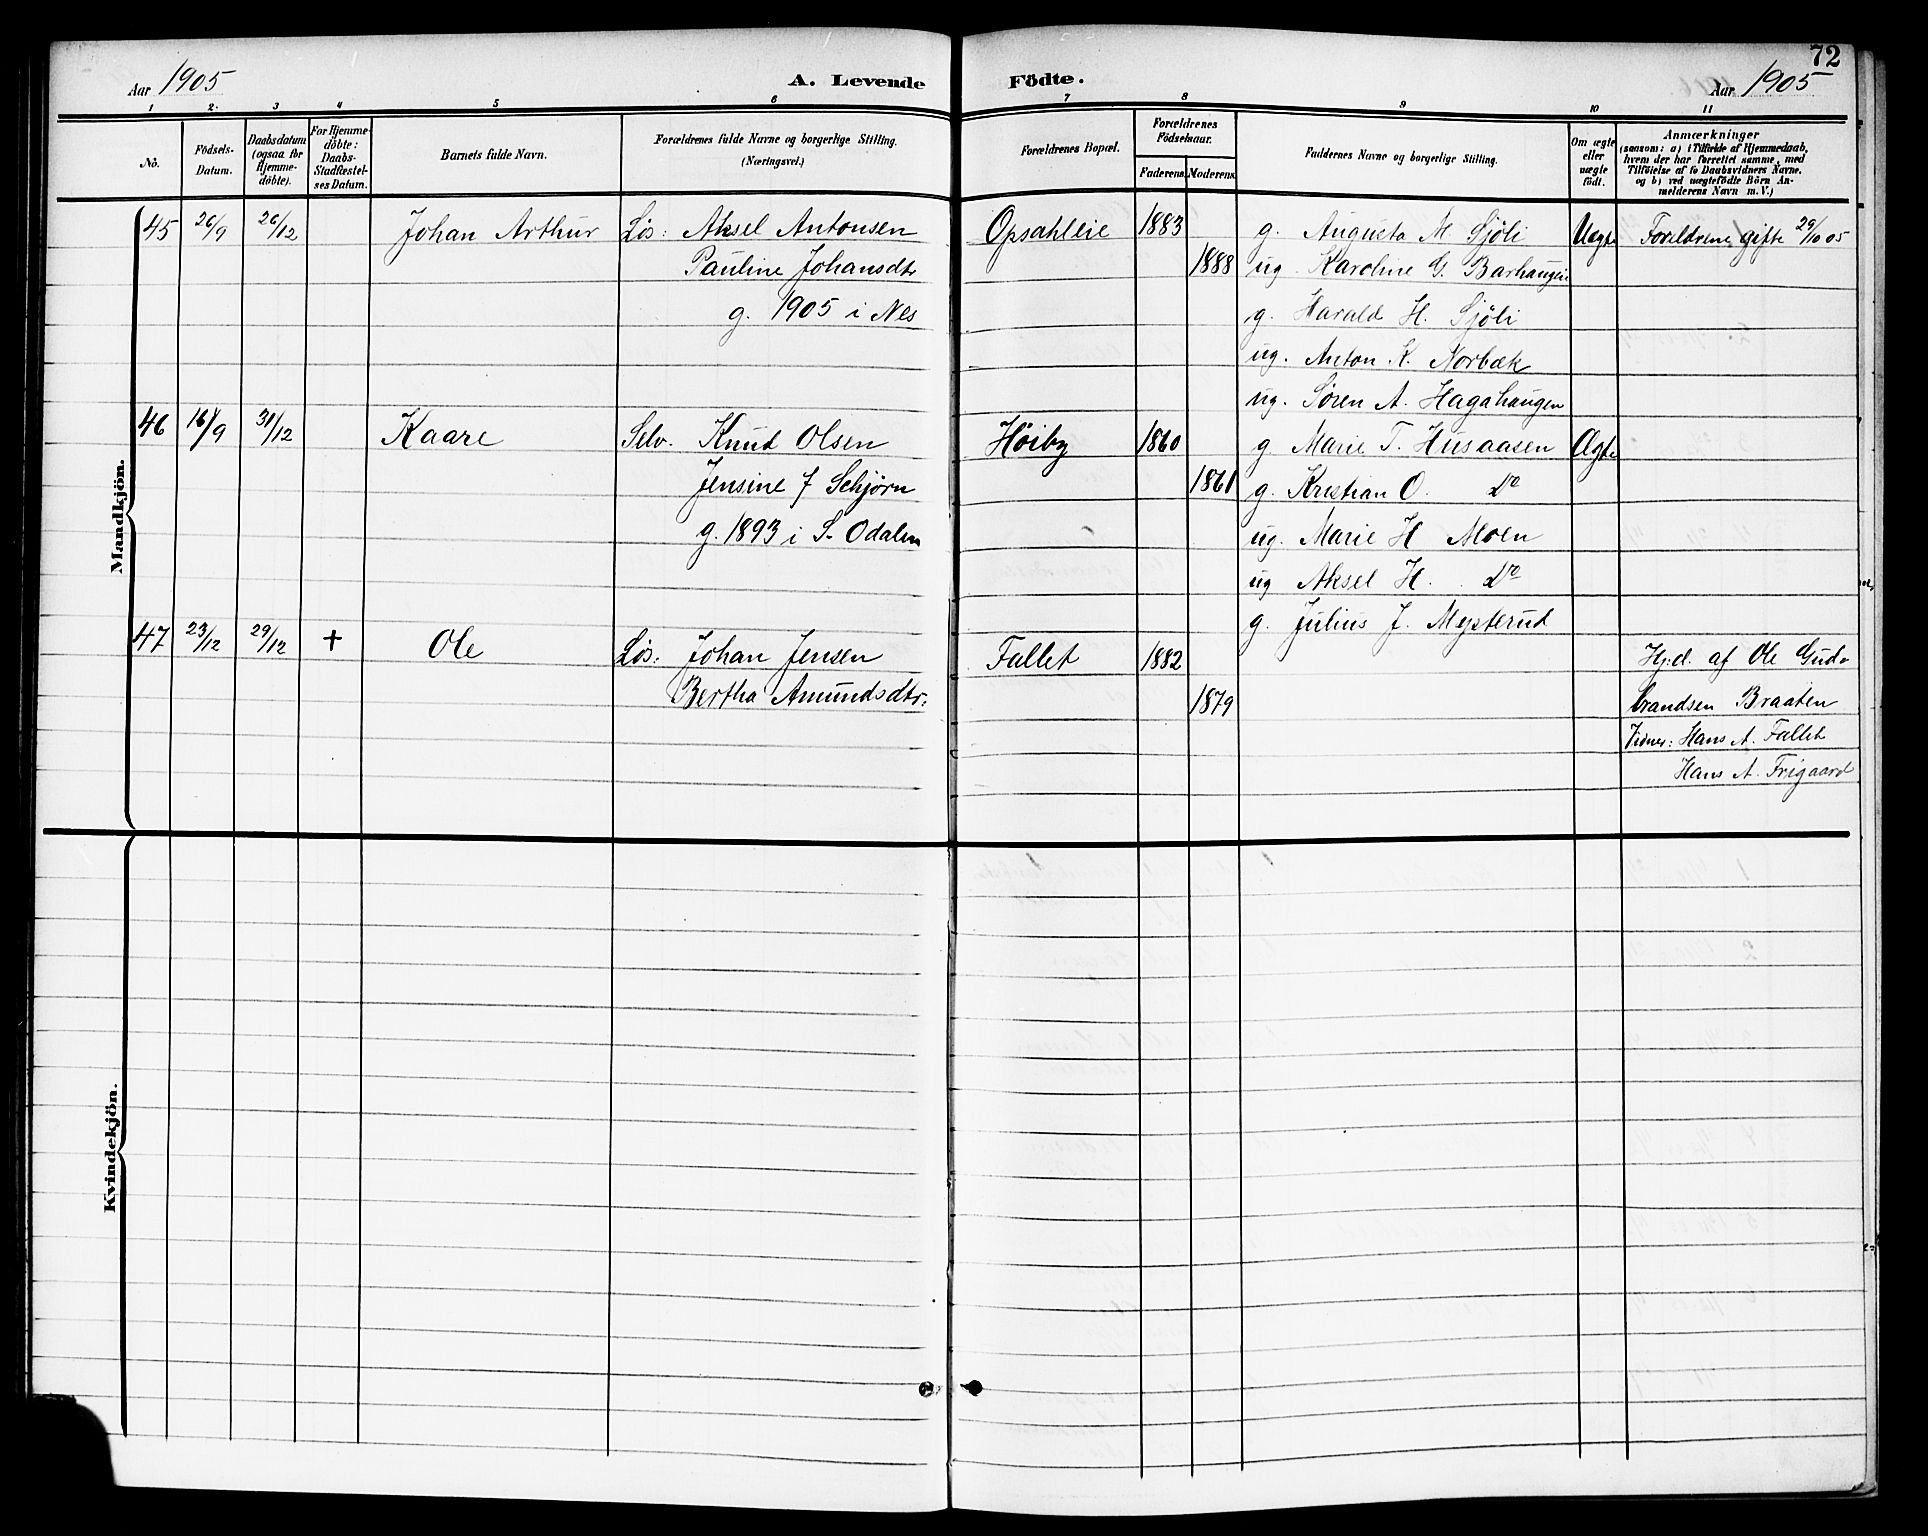 72
Aar 1905
A. Levende Födte.
Aar 1905
1 2. 3 4 5 6 7 8 9 10 11
No.
Födsels-
Datum.
Daabsdatum
(ogsaa for
Hjemme-
döbte).
For Hjemme-
döbte:
Daabs-
Stadfæstel-
ses Datum.
Barnets fulde Navn.
Forældrenes fulde Navne og borgerlige Stilling.
(Næringsvei.)
Forældrenes Bopæl.
Forældrenes
Födselsaar.
Faderens.
Moderens.
Faddernes Navne og borgerlige Stilling.
Om ægte
eller
uægte
födt.
Anmærkninger
(saasom: a) i Tilfælde af Hjemmedaab,
hvem der har forrettet samme, med
Tilföielse af to Daabsvidners Navne.
og b) ved uægtefödte Börn An-
melderens Navn m. V.)
Mandkjön.
45 26/9 26/12 Johan Arthur Løs: Aksel Antonsen Opsahleie 1883 g. Augusta M Sjöli Uægte Forældrene gifte 29/10 05
Pauline Johansdtr 1888 ug. Karoline G. Barhaugeie
g. 1905 i Nes g. Harald H. Sjöli
ug. Anton K. Norbæk
ug. Søren A. Hagahaugen
46 16/9 31/12 Kaare Selv. Knud Olsen Höiby 1860 g Marie T. Husaasen Ægte
Jensine J Schjørn 1861 g. Kristian O. Do
g. 1893 i S. Odalen ug. Marie H Moen
ug Aksel H. Do
g. Julius J. Mysterud
47 23/12 29/12 + Ole Løs: Johan Jensen Fallet 1882 Hj.d. af Ole Gud-
Bertha Amundsdtr. 1879 brandsen Braaten
Vidner: Hans A. Fallet
Hans A. Frigaard
Kvindekjön.